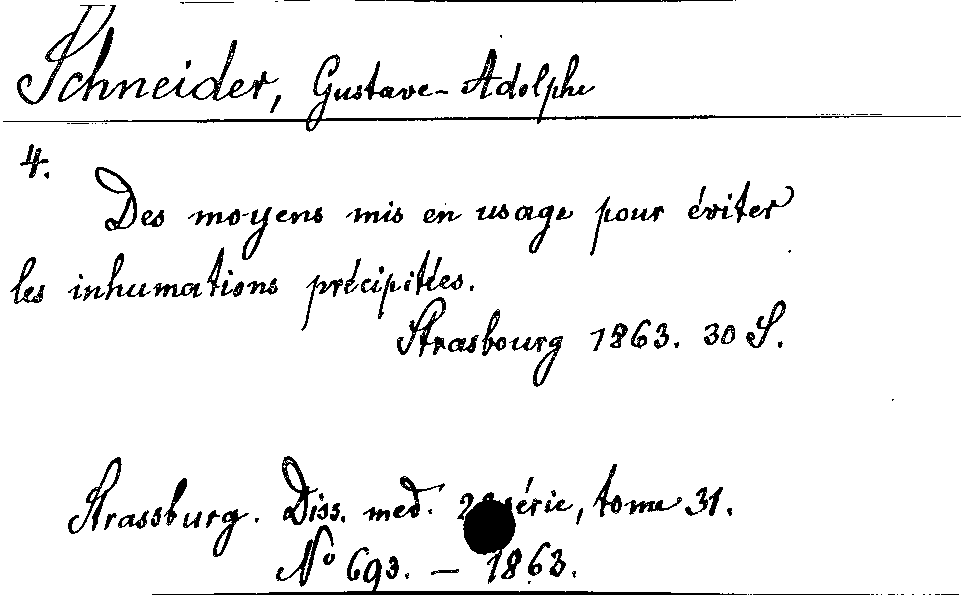 Schneider, Gustave-Adolphe
4.
Des moyens mis en usage pour éviter
les inhumations précipitées.
Strasbourg 1863. 30 S.
Strassburg. Diss. med. 2e série, tome 31.
No 693. — 1863.